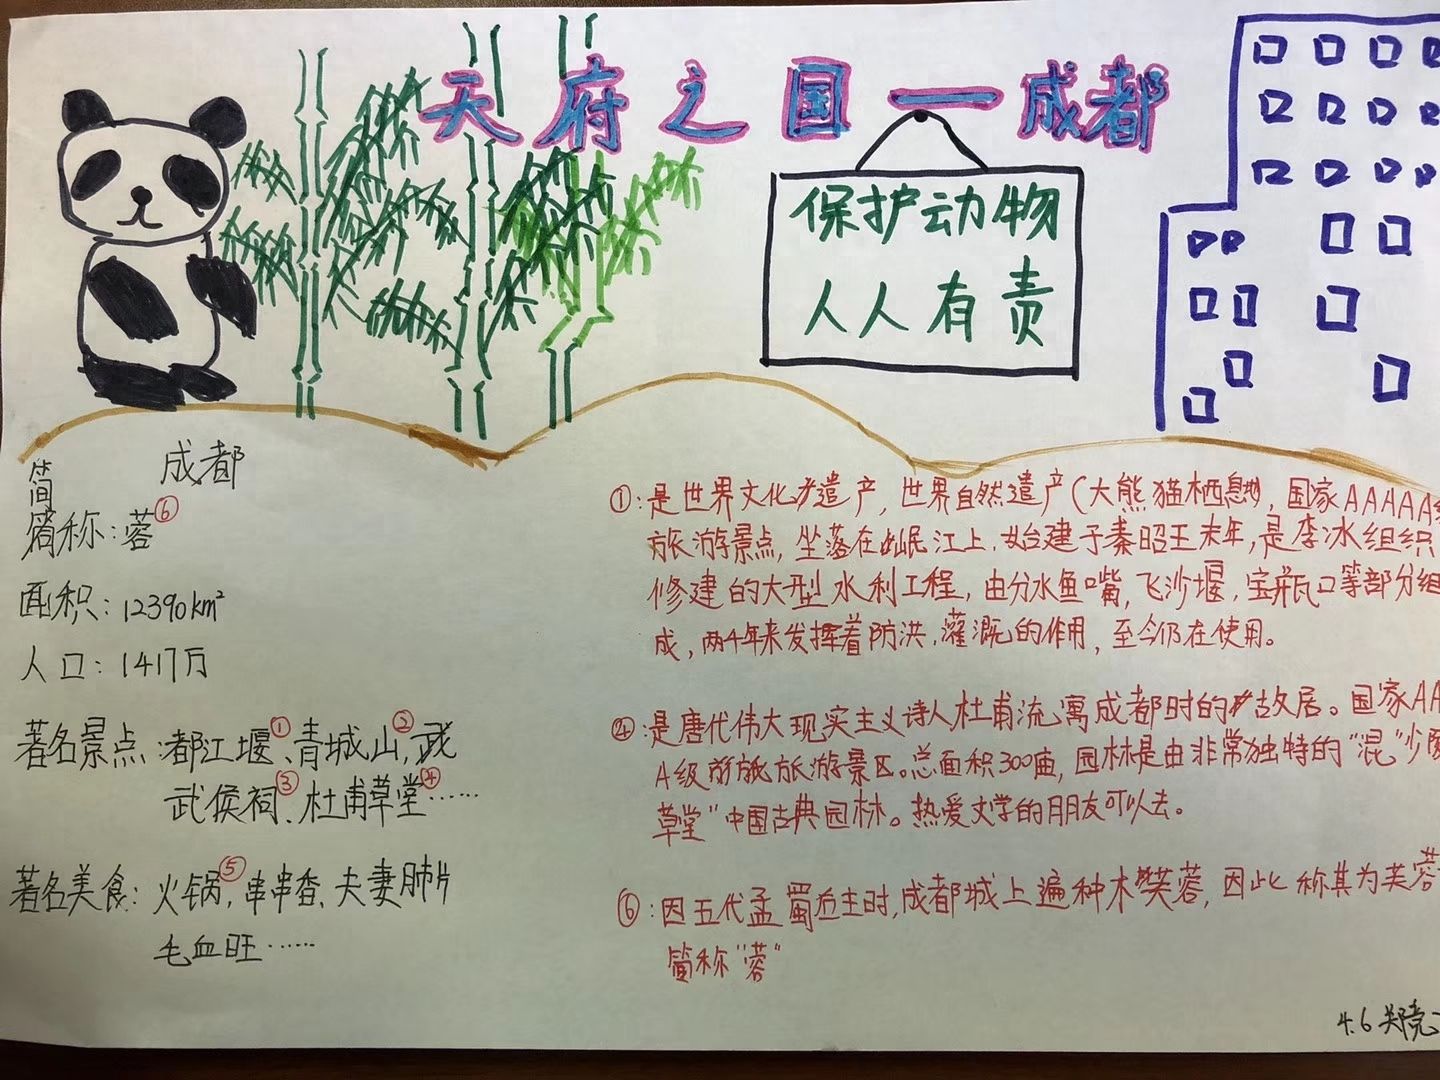 天府之国一成都
保护动物
人人有责
成都
简
简称:蓉⑥
面积:12390km²
人口:1417万
著名景点:都江堰①、青城山②,武
武侯祠③、杜甫草堂④……
著名美食:火锅⑤,串串香、夫妻肺片
毛血旺……
①:是世界文化遗产,世界自然遗产(大熊猫栖息地,国家AAAAA
旅游景点,坐落在岷江上,始建于秦昭王末年,是李冰组织
修建的大型水利工程,由分水鱼嘴,飞沙堰,宝瓶口等部分组
成,两千年来发挥着防洪,灌溉的作用,至今仍在使用。
④:是唐代伟大现实主义诗人杜甫流寓成都时的故居。国家AA
A级旅游景区。总面积300亩,园林是由非常独特的“混”
草堂”中国古典园林。热爱文学的朋友可以去。
⑥:因五代孟蜀后主时,成都城上遍种木芙蓉,因此称其为芙蓉
简称“蓉”
4.6 郑